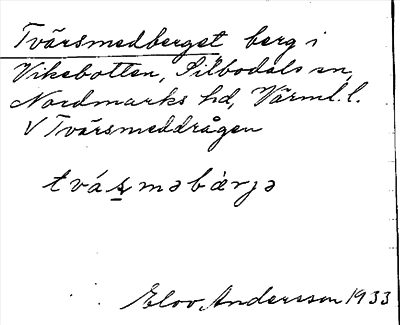 Tvärsmedberget berg i
Vikebotten, Silbodals sn,
Nordmarks hd, Värml. l.
V Tvärsmeddrågen
tvása̱məbærjə
Elov Andersson 1933